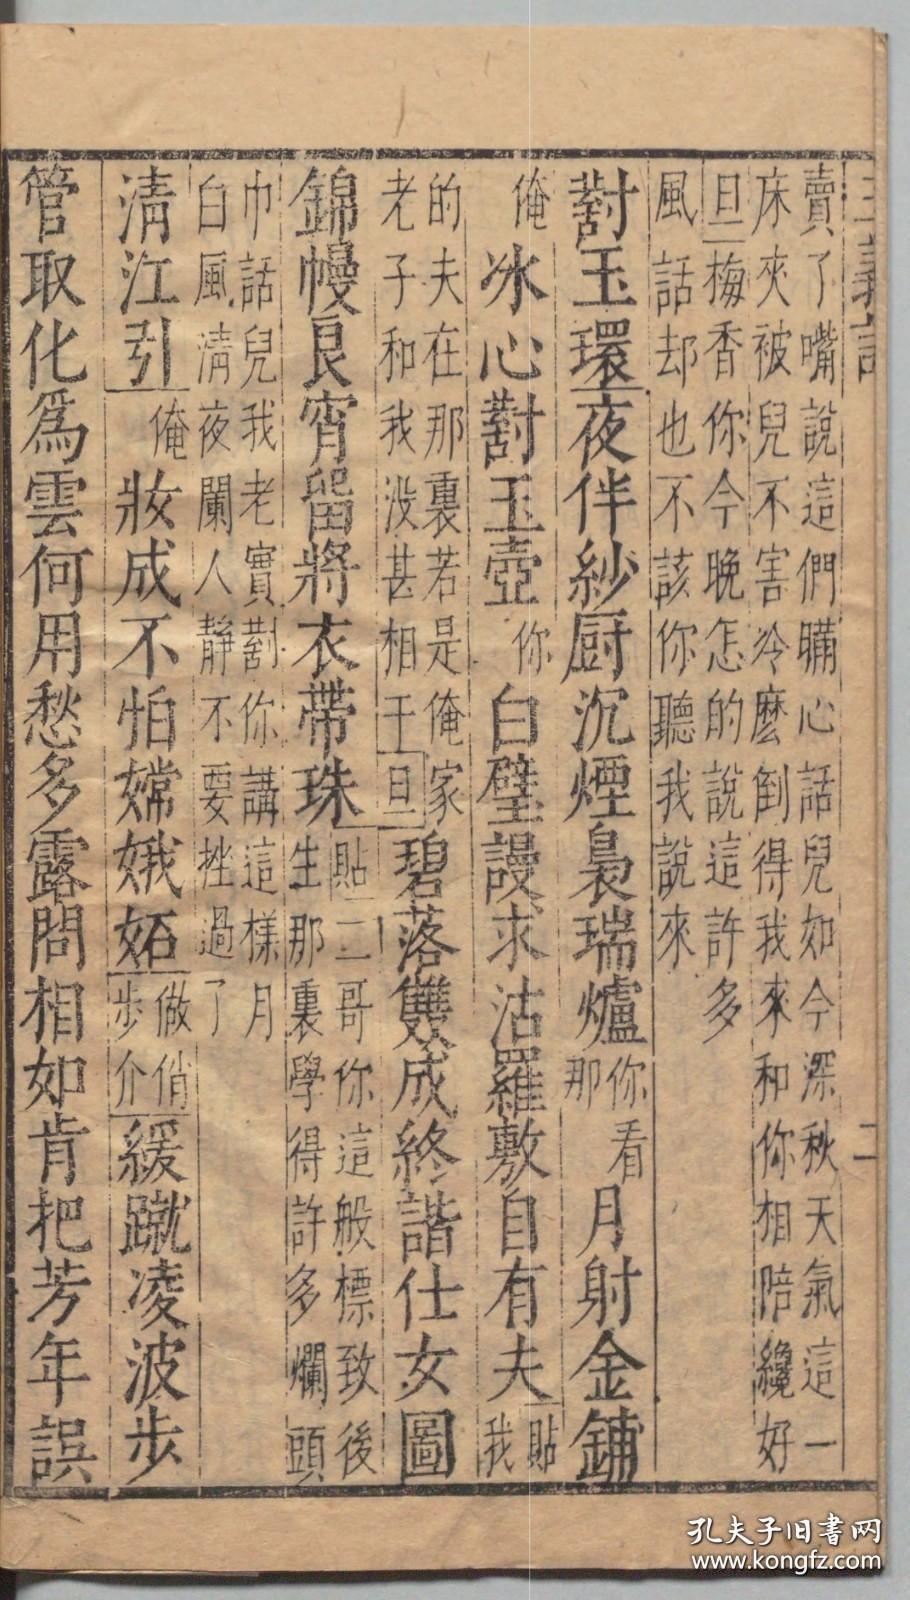 賣了嘴說這們瞞心話兒如今深秋天氣這一
床夾被兒不害冷麽倒得我來和你相陪纔好
旦梅香你今晚怎的說這許多
風話却也不該你聽我說來
對玉環夜伴紗厨沉煙裊瑞爐你那看月射金鋪
俺冰心對玉壺你白璧謾求沽羅敷自有夫貼我
的夫在那裏若是俺家
老子和我没甚相干旦碧落雙成終諧仕女圖
錦幔良宵留將衣帶珠貼二哥你這般標致後
生那裏學得許多爛頭
巾話兒我老實對你講這樣月
白風清夜闌人静不要挫過了
清江引俺妝成不怕嫦娥妬做俏
步介緩蹴凌波步
管取化爲雲何用愁多露問相如肯把芳年誤
二
孔夫子旧书网
www.kongfz.com